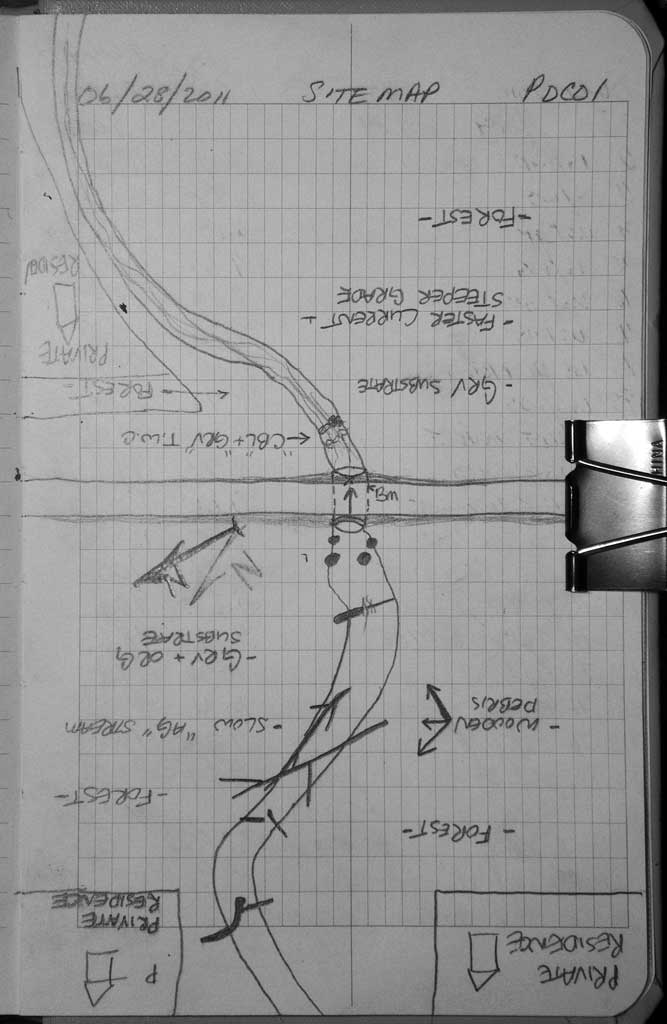 06/28/2011 SITE MAP PDC01
- FOREST -
- FASTER CURRENT +
STEEPER GRADE
- GRV SUBSTRATE
PRIVATE
RESIDEN
FOREST -
"CBL + GRV" T.W.C
BM
N
- GRV + ORG
SUBSTRATE
- SLOW "AG" STREAM
- WOODEN
DEBRIS
- FOREST -
- FOREST -
PRIVATE
RESIDENCE
P
PRIVATE
RESIDENCE